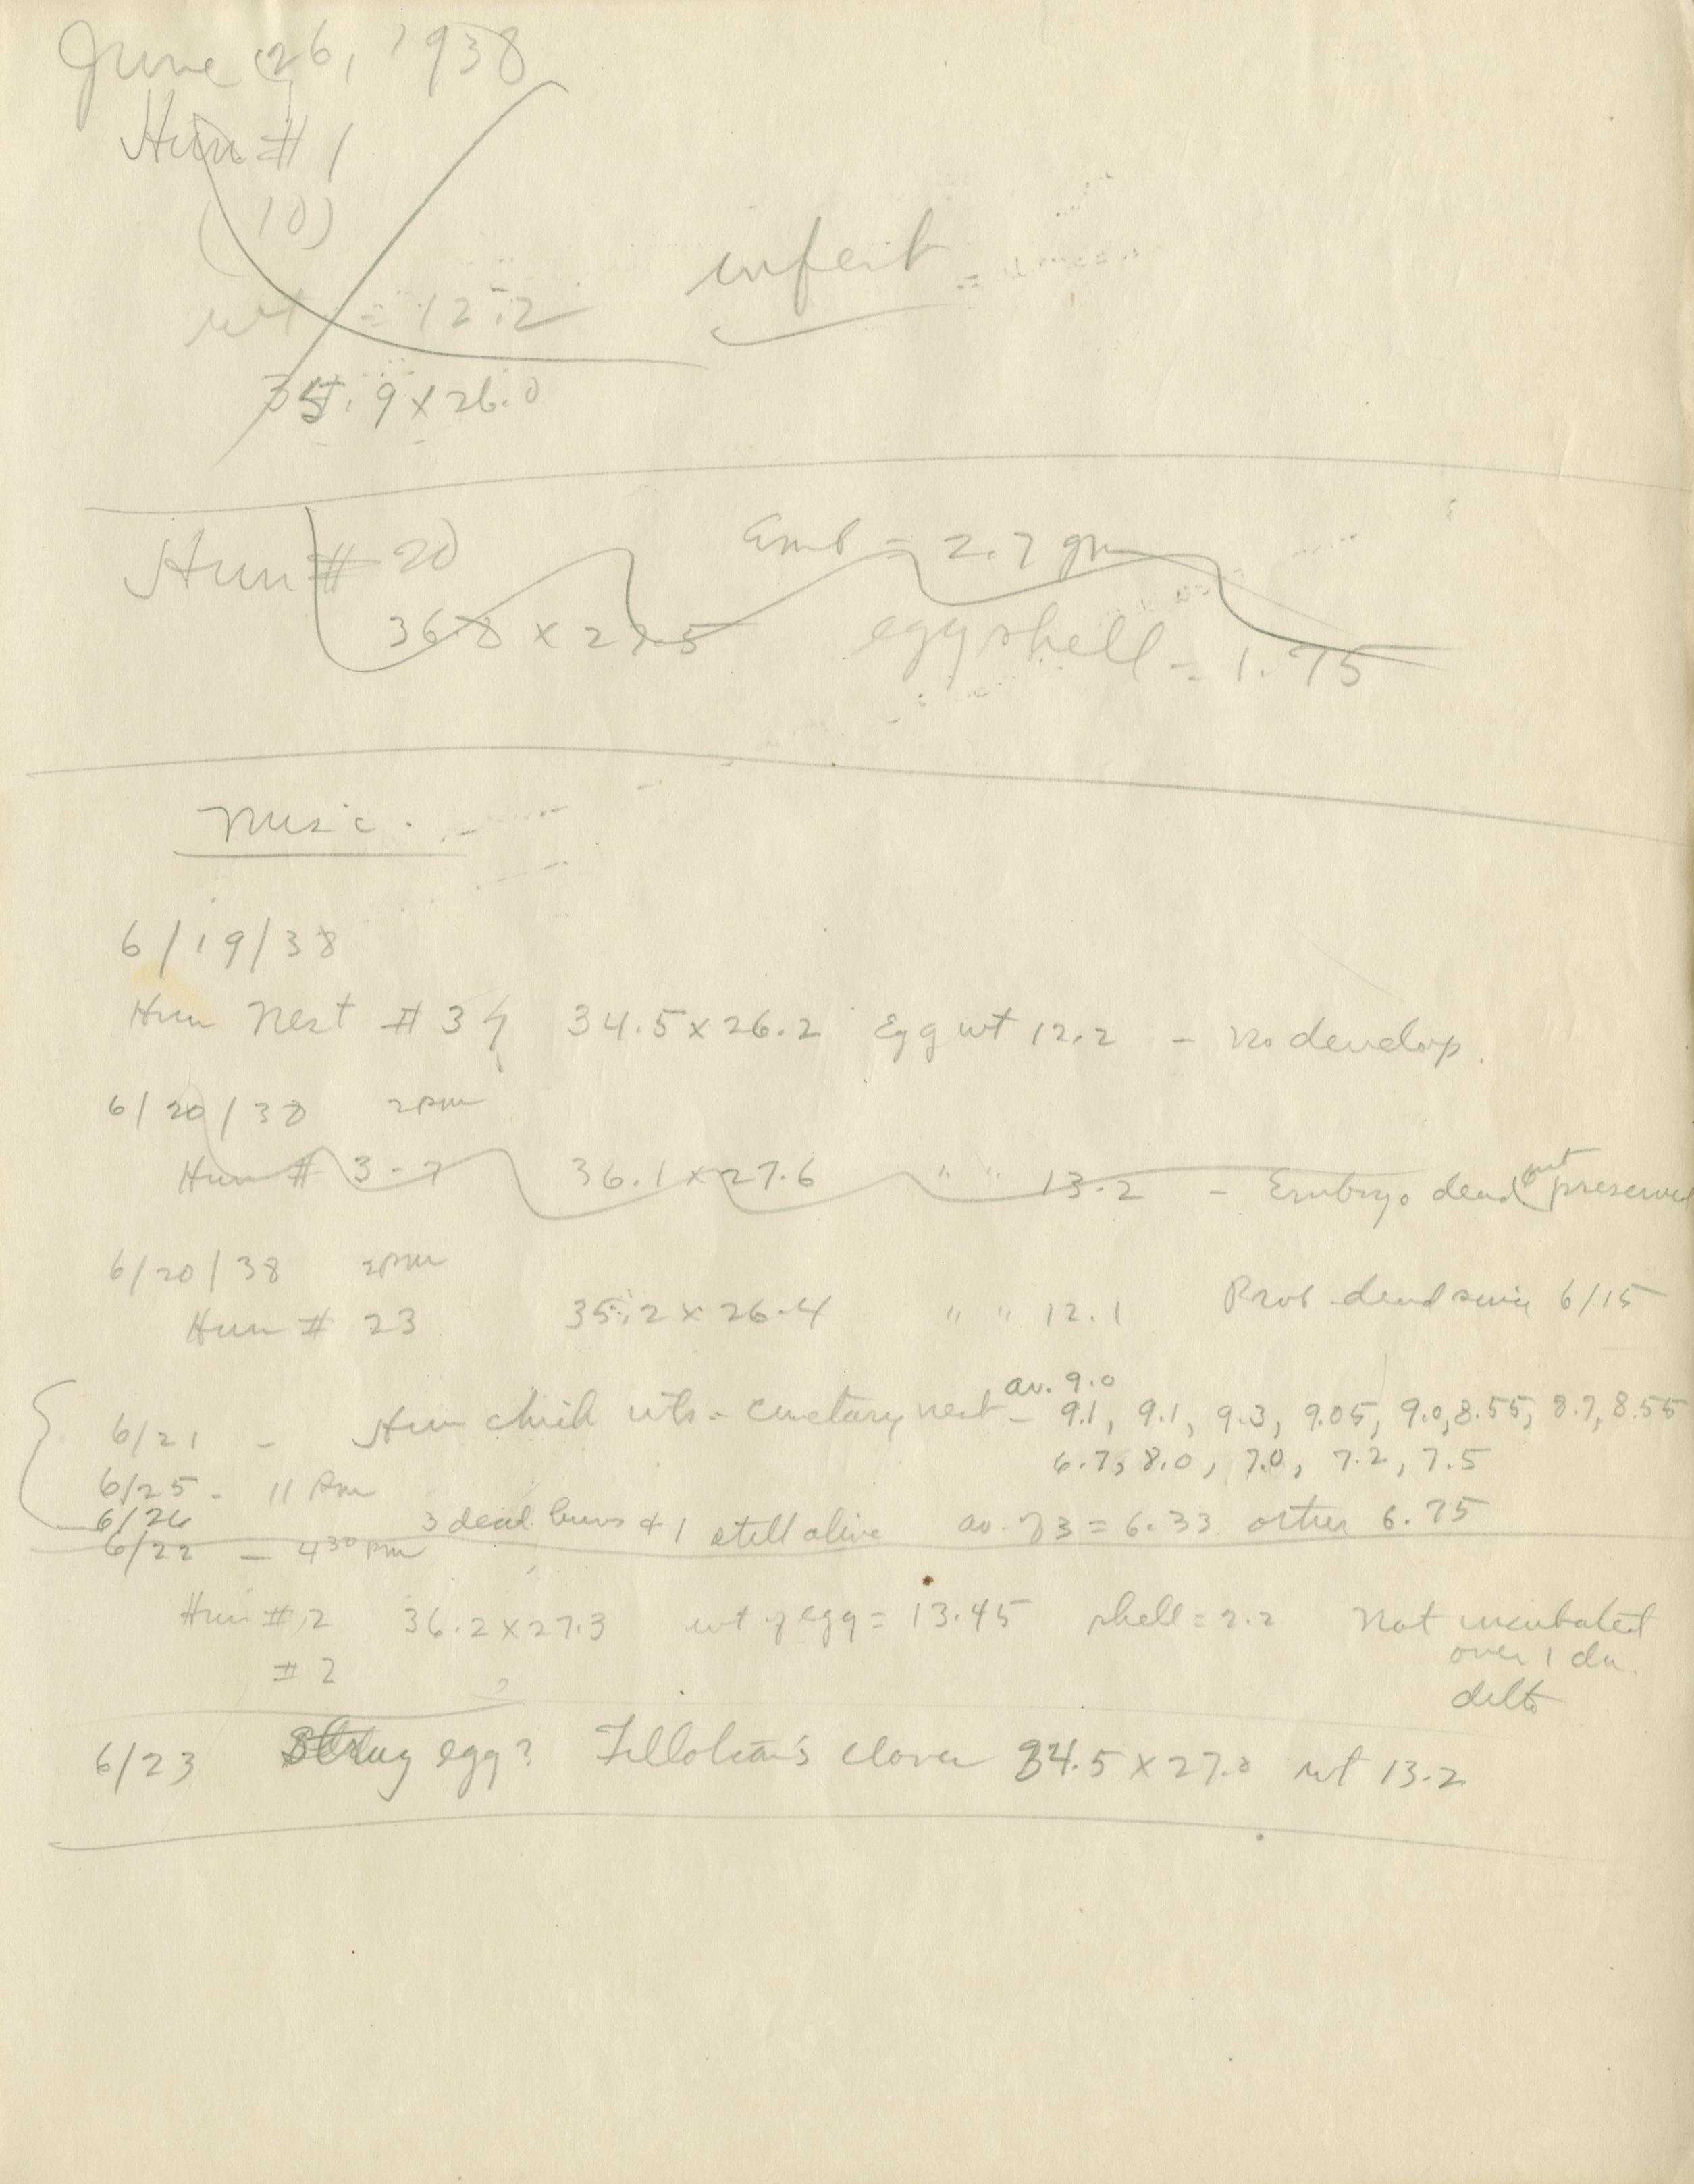 June 26, 1938
Hun # 1
(10)
wt = 12.2
infert
35.9 x 26.0
Hun # 20
Emb = 2.7 gm
36.8 x 27.5
eggshell = 1.75
Misc.
6/19/38
Hun Nest # 34 34.5 x 26.2 Egg wt 12.2 - No develop.
6/20/38 2 pm
Hun # 3-7 36.1 x 27.6 " " 13.2 - Embryo dead but preserved
6/20/38 2 pm
Hun # 23 35.2 x 26.4 " " 12.1 Prob. dead since 6/15
av. 9.0
6/21 - Hun chick wts - cemetary nest - 9.1, 9.1, 9.3, 9.05, 9.0, 8.55, 8.7, 8.55
6/25 - 11 Pm 6.7, 8.0, 7.0, 7.2, 7.5
6/26 3 dead huns & 1 still alive av. of 3 = 6.33 other 6.75
6/22 - 4 30 pm
Hun # 2 36.2 x 27.3 wt of egg = 13.45 shell = 2.2 Not incubated
# 2 over 1 da.
6/23 egg? clover 34.5 x 27.0 wt 13.2